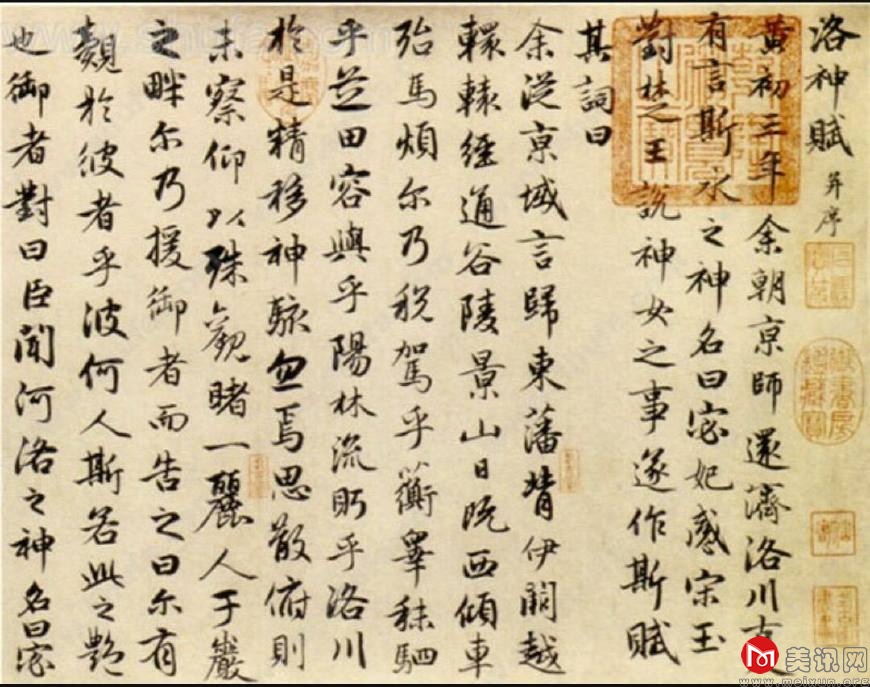 洛神賦 并序
黃初三年余朝京師還濟洛川古人
有言斯水之神名曰宓妃感宋玉
對楚王說神女之事遂作斯賦
其詞曰
余從京域言歸東藩背伊闕越
轘轅經通谷陵景山日既西傾車
殆馬煩尔乃稅駕乎蘅皋秣駟
乎芝田容與乎陽林流眄乎洛川
於是精移神駭忽焉思散俯則
未察仰以殊觀睹一麗人于巖
之畔尔乃援御者而告之曰尔有
覿於彼者乎彼何人斯若此之艷
也御者對曰臣聞河洛之神名曰宓
美讯网
www.meixun.org